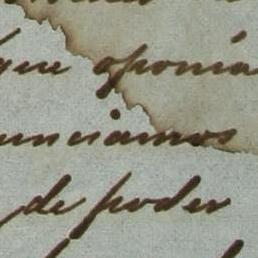 que oponia
unciamos
de poder